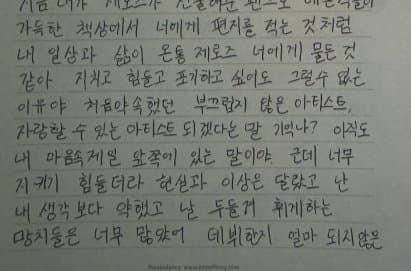 지금 내가 제로즈가 선물해준 펜으로
가득한 책상에서 너에게 편지를 적는 것 처럼
내 일상과 삶이 온통 제로즈 너에게 물든 것
같아 지치고 힘들고 포기하고 싶어도 그럴수 없는
이유야 처음약속했던 부끄럽지 않은 아티스트,
자랑할 수 있는 아티스트 되겠다는 말 기억나? 아직도
내 마음속제일 앞쪽에 있는 말이야. 근데 너무
지키기 힘들더라 현실과 이상은 달랐고 난
내 생각 보다 약했고 날 두들겨 휘게하는
망치들은 너무 많았어 데뷔한지 얼마 되지않은